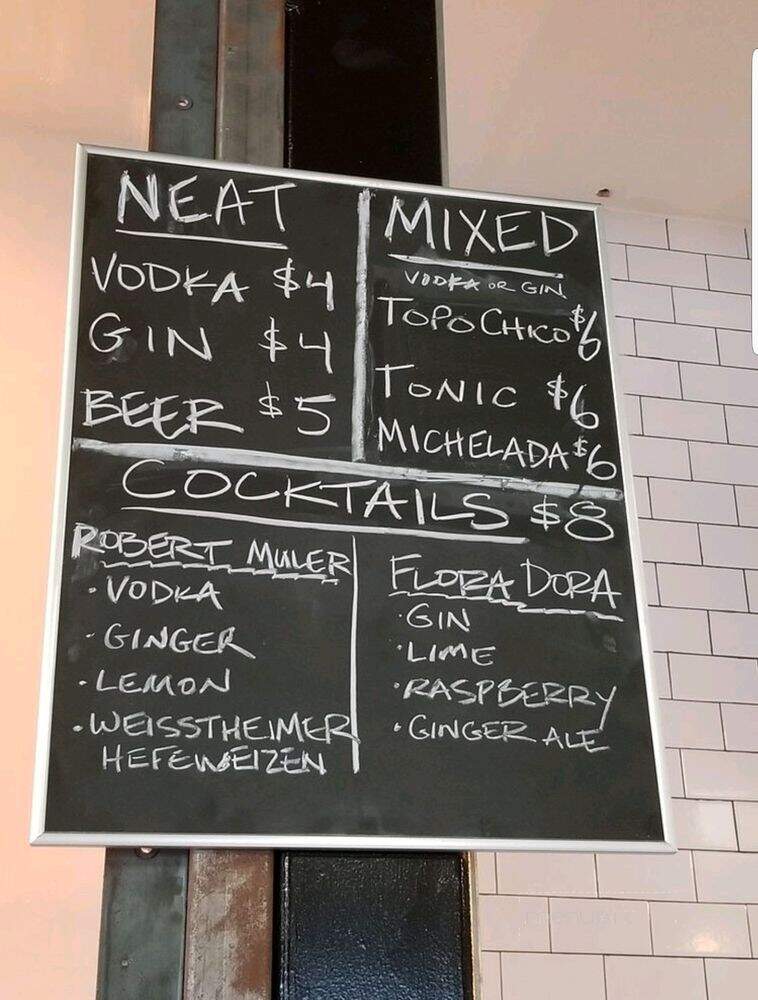 NEAT
VODKA $4
GIN $4
BEER $5
MIXED
VODKA OR GIN
TOPO CHICO $6
TONIC $6
MICHELADA $6
COCKTAILS $8
ROBERT MULER
· VODKA
· GINGER
· LEMON
· WEISSTHEIMER
HEFEWEIZEN
FLORA DORA
· GIN
· LIME
· RASPBERRY
· GINGER ALE